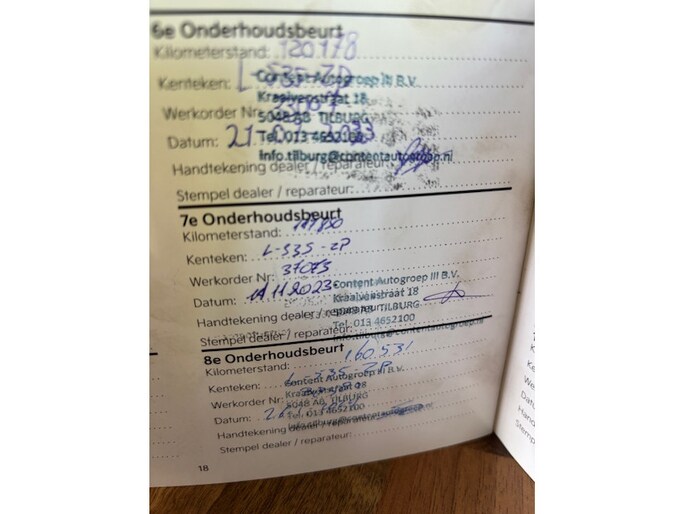 6e Onderhoudsbeurt
Kilometerstand: 120178
Kenteken: L-535-ZP
Content Autogroep III B.V.
Kraaivenstraat 18
Werkorder Nr:
5048 AB TILBURG
Datum: 21
Tel. 013 4652100
info.tilburg@contentautogroep.nl
Handtekening dealer / reparateur:
Stempel dealer / reparateur:
7e Onderhoudsbeurt
Kilometerstand:
Kenteken: L-535-ZP
Werkorder Nr: 37073
Content Autogroep III B.V.
Datum: 2023
Kraaivenstraat 18
Handtekening dealer / reparateur:
5048 AB TILBURG
Tel. 013 4652100
Stempel dealer / reparateur:
info.tilburg@contentautogroep.nl
8e Onderhoudsbeurt
Kilometerstand: 160.531
Kenteken: L-535-ZP
Content Autogroep III B.V.
Kraaivenstraat 18
Werkorder Nr:
5048 AB TILBURG
Datum:
Tel. 013 4652100
Handtekening dealer / reparateur:
Stempel dealer / reparateur:
18